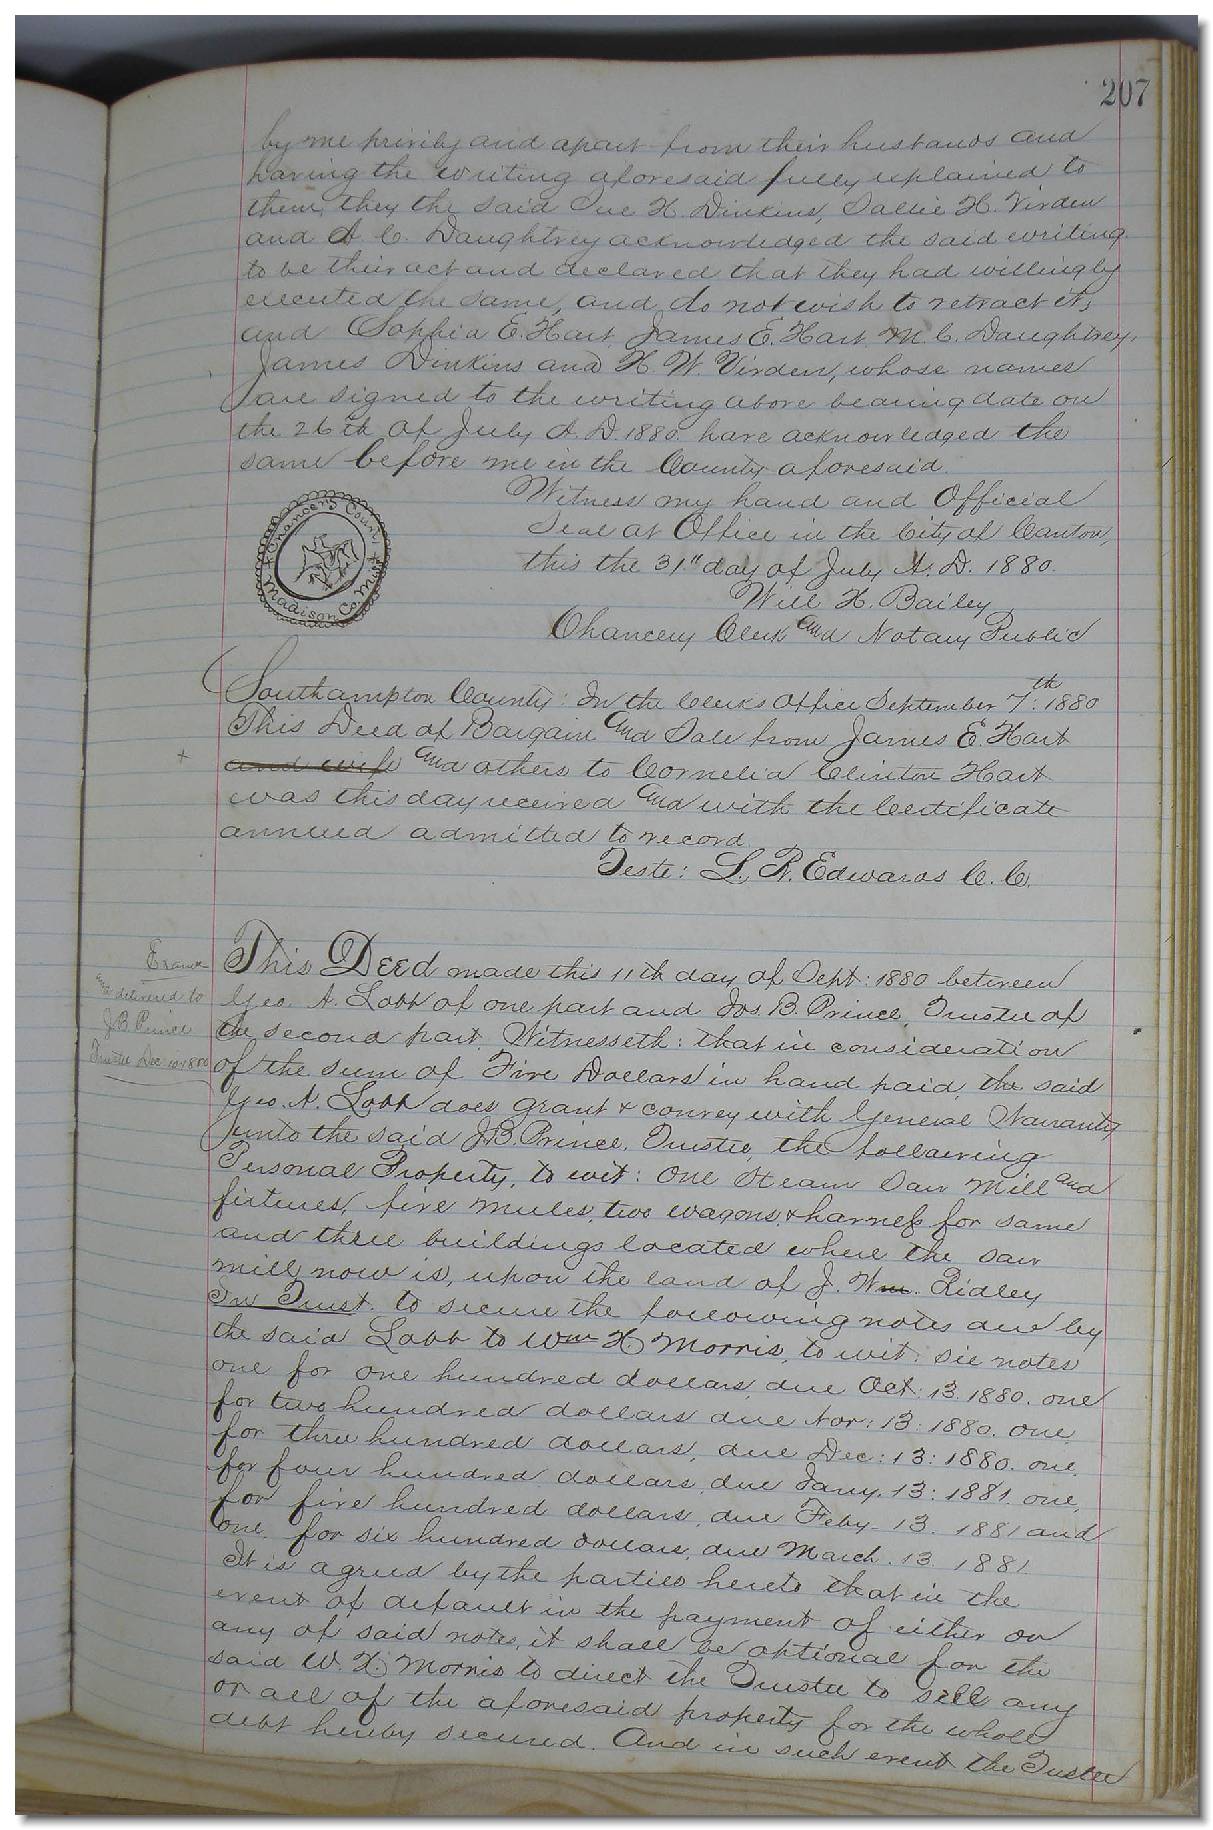 207
by me privily and apart from their husbands and
having the writing aforesaid fully explained to
them, they the said Sue H. Dinkins, Sallie H. Virden
and A C. Daughtrey acknowledged the said writing
to be their act and declared that they had willingly
executed the same, and do not wish to retract it,
and Sophia E. Hart James E. Hart M. C. Daughtrey,
James Dinkins and H. W. Virden, whose names
are signed to the writing above bearing date on
the 26th of July A. D. 1880. have acknowledged the
same before me in the County aforesaid.
Witness my hand and Official
Seal at Office in the City of Canton,
this the 31" day of July A. D. 1880.
Will H. Bailey
Chancery Clerk and Notary Public
Chancery Court
Madison Co. Miss
Southampton County: In the Clerks Office September 7th. 1880
This Deed of Bargain and Sale from James E. Hart
+ and wife and others to Cornelia Clinton Hart
was this day received and with the Certificate
annexed admitted to record
Teste: L. R. Edwards C. C.
and delivered to
J. B. Prince
Trustee Dec 10 1880
This Deed made this 11th day of Sept: 1880 between
Geo. A. Lobb of one part and Jos. B. Prince, Trustee of
the second part. Witnesseth: that in consideration
of the sum of Five Dollars in hand paid, the said
Geo. A. Lobb does grant & convey with General Warranty
unto the said J. B. Prince, Trustee, the following
Personal Property, to wit: One Steam Saw Mill and
fixtures, five mules, two wagons, & harness for same
and three buildings located where the saw
mill now is, upon the land of J. Wm. Ridley
In Trust. to secure the following notes due by
the said Lobb to Wm H Morris, to wit: six notes
one for one hundred dollars, due Oct: 13. 1880. one
for two hundred dollars due Nov: 13: 1880. one
for three hundred dollars, due Dec: 13: 1880. one
for four hundred dollars, due Jany. 13: 1881. one,
for five hundred dollars, due Feby. 13. 1881 and
one. for six hundred dollars, due March. 13 1881.
It is agreed by the parties hereto that in the
event of default in the payment of either or
any of said notes, it shall be optional for the
said W. H. Morris to direct the Trustee to sell any
or all of the aforesaid property for the whole
debt hereby secured. And in such event the Trustee